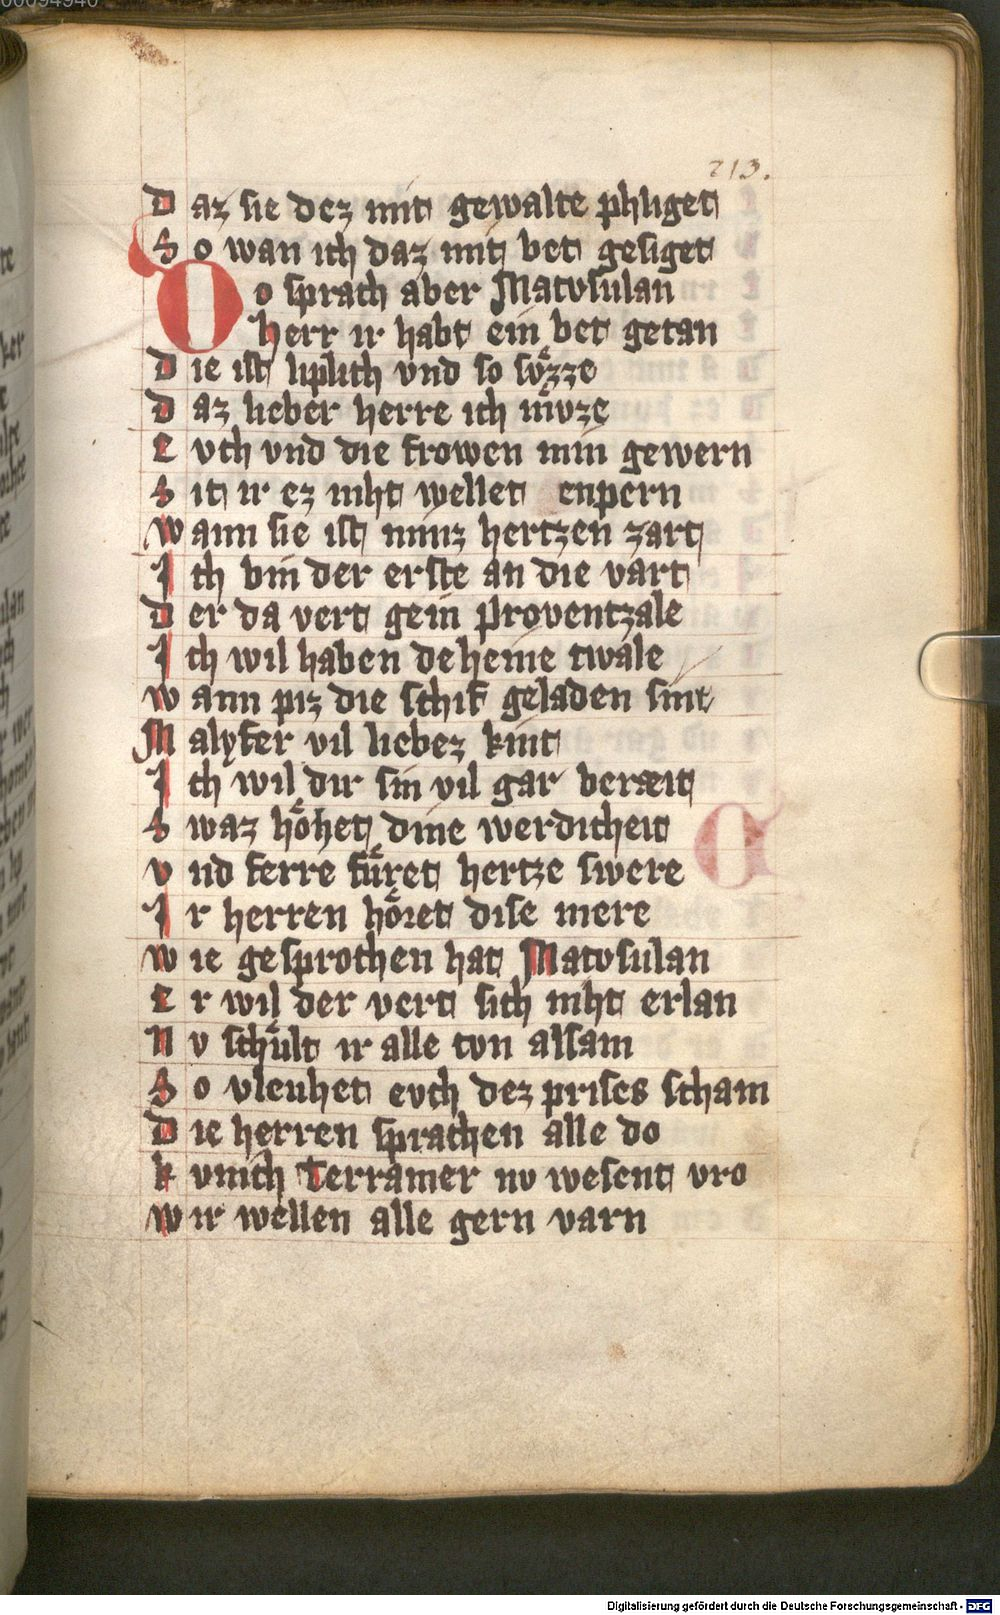 00094940
213.
D az sie dez mit gewalte phliget
S o wan ich daz mit bet gesiget
D o sprach aber Matvsulan
herr ir habt ein bet getan
D ie ist liplich vnd so sv̊zze
D az lieber herre ich mv̊ze
E vch vnd die frowen min gewern
S it ir ez niht wellet enpern
W ann sie ist minz hertzen zart
I ch bin der erste an die vart
D er da vert gein Proventzale
I ch wil haben deheine twale
W ann piz die schif geladen sint
M alyfer vil liebez kint
I ch wil dir sin vil gar bereit
S waz hoͤhet dine werdicheit
V nd ferre fuͤret hertze swere
I r herren hoͤret dise mere
W ie gesprochen hat Matvsulan
E r wil der vert sich niht erlan
N v schuͤlt ir alle tvn alsam
S o vleuhet evch dez prises scham
D ie herren sprachen alle do
K vnich Terramer nv wesent vro
W ir wellen alle gern varn
Digitalisierung gefördert durch die Deutsche Forschungsgemeinschaft - DFG